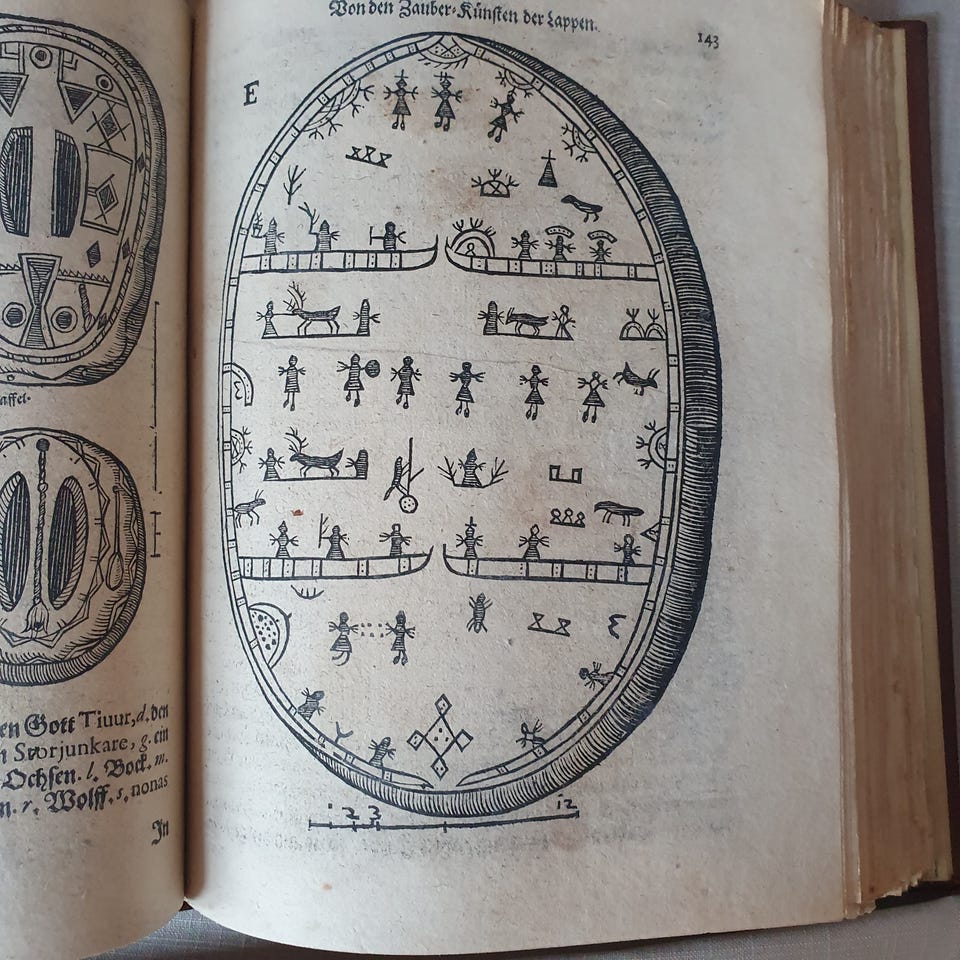 affel.
en Gott Tiuur, d. den
n Storjunkare, g. ein
Ochsen. l. Bock. m.
n. r. Wolff. s. nonas
In
Von den Zauber-Künsten der Lappen.
143
E
1 2 3 12